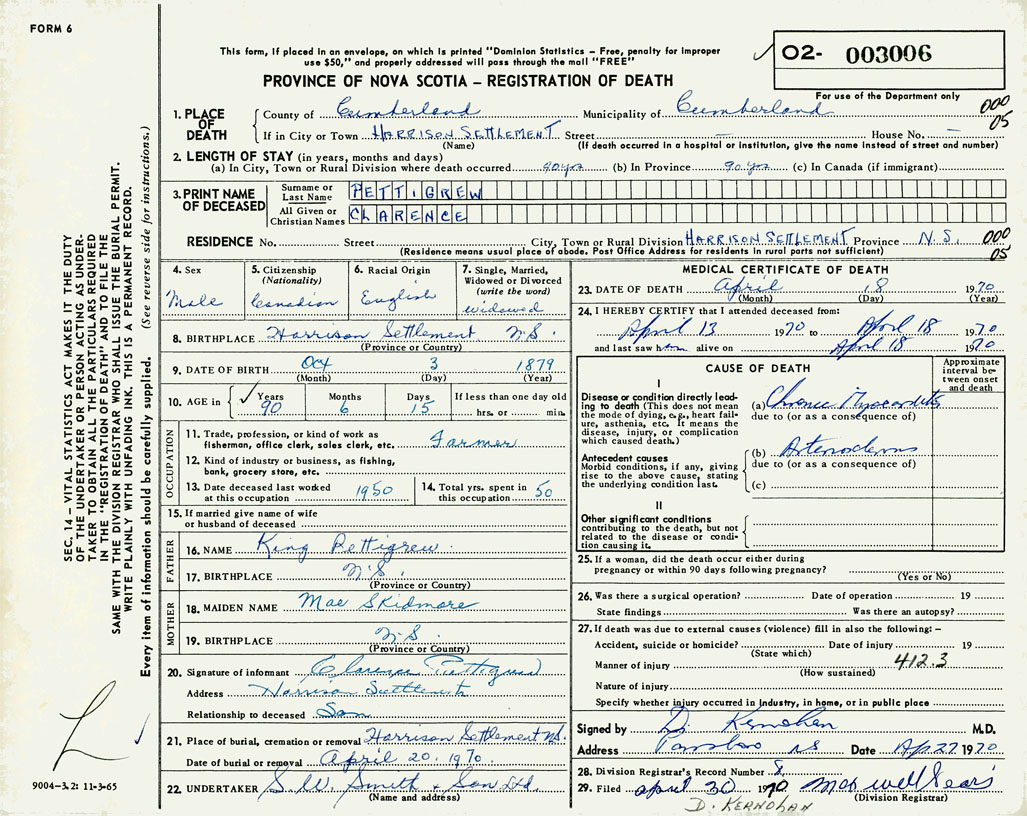 FORM 6
This form, if placed in an envelope, on which is printed "Dominion Statistics – Free, penalty for improper
use $50," and properly addressed will pass through the mail "FREE"
PROVINCE OF NOVA SCOTIA – REGISTRATION OF DEATH
O2- 003006
For use of the Department only
1. PLACE OF DEATH
County of Cumberland Municipality of Cumberland 000
05
If in City or Town HARRISON SETTLEMENT Street — House No. —
(Name) (If death occurred in a hospital or institution, give the name instead of street and number)
2. LENGTH OF STAY (in years, months and days)
(a) In City, Town or Rural Division where death occurred 90 yrs (b) In Province 90 yrs (c) In Canada (if immigrant)
3. PRINT NAME OF DECEASED
Surname or Last Name PETTIGREW
All Given or Christian Names CLARENCE
RESIDENCE No. Street City, Town or Rural Division HARRISON SETTLEMENT Province N.S. 000
05
(Residence means usual place of abode. Post Office Address for residents in rural parts not sufficient)
4. Sex
Male
5. Citizenship
(Nationality)
Canadian
6. Racial Origin
English
7. Single, Married,
Widowed or Divorced
(write the word)
widowed
8. BIRTHPLACE Harrison Settlement N.S.
(Province or Country)
9. DATE OF BIRTH Oct 3 1879
(Month) (Day) (Year)
10. AGE in
Years Months Days If less than one day old
90 6 15 hrs. or min.
OCCUPATION
11. Trade, profession, or kind of work as
fisherman, office clerk, sales clerk, etc. Farmer
12. Kind of industry or business, as fishing,
bank, grocery store, etc.
13. Date deceased last worked
at this occupation 1950
14. Total yrs. spent in
this occupation 50
15. If married give name of wife
or husband of deceased
FATHER
16. NAME King Pettigrew
17. BIRTHPLACE N.S.
(Province or Country)
MOTHER
18. MAIDEN NAME Mae Skidmore
19. BIRTHPLACE N.S.
(Province or Country)
20. Signature of informant Clarence Pettigrew
Address Harrison Settlement
Relationship to deceased Son
21. Place of burial, cremation or removal Harrison Settlement N.S.
Date of burial or removal April 20, 1970
22. UNDERTAKER S.W. Smith & Son Ltd.
(Name and address)
MEDICAL CERTIFICATE OF DEATH
23. DATE OF DEATH April 18 1970
(Month) (Day) (Year)
24. I HEREBY CERTIFY that I attended deceased from:
April 13 1970 to April 18 1970
and last saw him alive on April 18 1970
CAUSE OF DEATH
Approximate
interval be-
tween onset
and death
I
Disease or condition directly lead-
ing to death (This does not
mean the mode of dying, e.g., heart fail-
ure, asthenia, etc. It means the
disease, injury, or complication
which caused death.)
(a) Chronic Myocarditis
due to (or as a consequence of)
Antecedent causes
Morbid conditions, if any, giving
rise to the above cause, stating
the underlying condition last.
(b)
due to (or as a consequence of)
(c)
II
Other significant conditions
contributing to the death, but not
related to the disease or condi-
tion causing it.
25. If a woman, did the death occur either during
pregnancy or within 90 days following pregnancy?
(Yes or No)
26. Was there a surgical operation? Date of operation 19
State findings Was there an autopsy?
27. If death was due to external causes (violence) fill in also the following: –
Accident, suicide or homicide? Date of injury 19
(State which)
412.3
Manner of injury
(How sustained)
Nature of injury
Specify whether injury occurred in Industry, in home, or in public place
Signed by D. Kernohan M.D.
Address Parrsboro NS Date Ap 27 1970
28. Division Registrar's Record Number 8
29. Filed April 30 1970 Maxwell Sears
(Division Registrar)
D. KERNOHAN
SEC. 14 – VITAL STATISTICS ACT MAKES IT THE DUTY
OF THE UNDERTAKER OR PERSON ACTING AS UNDER-
TAKER TO OBTAIN ALL THE PARTICULARS REQUIRED
IN THE "REGISTRATION OF DEATH" AND TO FILE THE
SAME WITH THE DIVISION REGISTRAR WHO SHALL ISSUE THE BURIAL PERMIT.
WRITE PLAINLY WITH UNFADING INK. THIS IS A PERMANENT RECORD.
Every item of information should be carefully supplied. (See reverse side for instructions.)
9004–3.2: 11-3-65